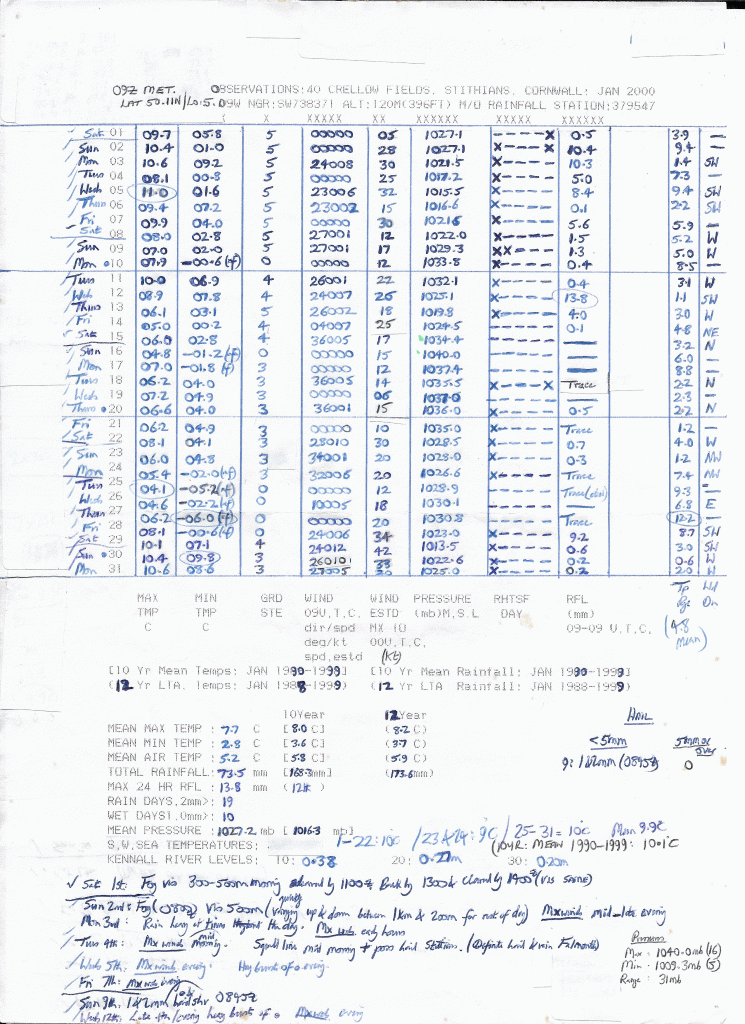 09Z MET. OBSERVATIONS:40 CRELLOW FIELDS, STITHIANS, CORNWALL: JAN 2000
LAT 50.11N/Lo:5.09W NGR:SW738371 ALT:120M(396FT) M/O RAINFALL STATION:379547
X XXXXX XX XXXX XXXXX XXXXXX
✓ Sat 01 09.7 05.8 5 00000 05 1027.1 ----X 0.5 3.9 —
Sun 02 10.4 01.0 5 00000 28 1027.1 X----X 10.4 9.4 —
Mon 03 10.6 09.2 5 24008 30 1021.5 X---- 10.3 1.4 SW
Tues 04 08.1 00.8 5 00000 25 1017.2 X---- 5.0 7.3 —
Wed 05 11.0 01.6 5 23006 32 1015.5 X---- 8.4 9.4 SW
Thurs 06 09.4 07.2 5 23002 15 1016.6 X---- 0.1 2.2 SW
Fri 07 09.9 04.0 5 00000 30 1021.6 X---- 5.6 5.9 —
Sat 08 08.0 02.8 5 27001 12 1022.0 X---- 1.5 5.2 W
Sun 09 07.0 02.0 5 27001 17 1029.3 XX--- 1.3 5.0 W
Mon 10 07.9 -00.6(f) 0 00000 12 1033.8 X---- 0.4 8.5 —
Tues 11 10.0 06.9 4 26001 22 1032.1 X---- 0.4 3.1 W
Wed 12 08.9 07.8 4 24007 26 1025.1 X---- 13.8 1.1 SW
Thurs 13 06.1 03.1 5 26002 18 1019.8 X---- 4.0 3.0 W
Fri 14 05.0 00.2 4 04007 25 1024.5 X---- 0.1 4.8 NE
✓ Sat 15 06.0 02.8 4 36005 17 1034.4 ----- — 3.2 N
Sun 16 04.8 -01.2(f) 0 00000 15 1040.0 ----- — 6.0 —
Mon 17 07.0 -01.8(f) 3 00000 12 1037.4 ----- — 8.8 —
Tues 18 06.2 04.0 3 36005 14 1035.5 X----X Trace 2.2 N
Wed 19 07.2 04.9 3 00000 06 1037.0 ----- — 2.3 —
Thurs 20 06.6 04.0 3 36001 15 1036.0 X---- 0.5 2.2 N
Fri 21 06.2 04.9 3 00000 10 1035.0 X---- Trace 1.2 —
Sat 22 08.1 04.1 3 28010 30 1028.5 X---- 0.7 4.0 W
Sun 23 06.0 04.8 3 34001 20 1028.0 X---- 0.3 1.2 NW
Mon 24 05.4 -02.0(f) 3 32006 20 1026.6 X---- Trace 7.4 NW
Tues 25 04.1 -05.2(f) 0 00000 12 1028.9 ----- Trace 9.3 —
Wed 26 04.6 -02.2(f) 0 10005 18 1030.1 ----- — 6.8 E
Thurs 27 06.2 -06.0(f) 0 00000 20 1030.8 ----- Trace 12.2 —
Fri 28 08.1 -00.6(f) 0 24006 34 1023.0 X---- 9.2 8.7 SW
Sat 29 10.1 07.1 4 24012 42 1013.5 X---- 0.6 3.0 SW
Sun 30 10.4 09.8 3 26010 33 1022.6 X---- 0.2 0.6 W
Mon 31 10.6 08.6 3 27005 20 1025.0 X---- 0.2 2.0 W
MAX MIN GRD WIND WIND PRESSURE RHTSF RFL Tp Wd
TMP TMP STE 09U.T.C. ESTD (mb)M.S.L DAY (mm) Rge Dn
C C dir/spd MX 10 09-09 U.T.C. (4.8
deg/kt 00U.T.C. Mean)
spd.estd (Kt)
[10 Yr Mean Temps: JAN 1990-1999] [10 Yr Mean Rainfall: JAN 1990-1999]
(12 Yr LTA. Temps: JAN 1988-1999) (12 Yr LTA Rainfall: JAN 1988-1999)
10Year 12Year HAIL
MEAN MAX TEMP : 7.7 C [8.0 C] (8.2 C) <5mm 5mm or over
MEAN MIN TEMP : 2.8 C [3.6 C] (3.7 C)
MEAN AIR TEMP : 5.2 C [5.8 C] (5.9 C) 9: 1&2mm (0845z) 0
TOTAL RAINFALL: 73.5 mm [168.3mm] (173.6mm)
MAX 24 HR RFL : 13.8 mm (12th)
RAIN DAYS.2mm>: 19
WET DAYS1.0mm>: 10
MEAN PRESSURE : 1027.2 mb [1016.3 mb]
S.W.SEA TEMPERATURES: 1-22:10c / 23&24: 9°c / 25-31 = 10°c Mean 9.9°C
(10YR: MEAN 1990-1999: 10.1°C
KENNALL RIVER LEVELS: 10: 0.38 20: 0.27m 30: 0.20m
✓ Sat 1st: Fog vis 300-500m morning cleared by 1100z Back by 1300z cleared by 1400z (VIS SAME)
Sun 2nd: Fog (0800z) Vis 500m (varying quickly up & down between 1km & 200m for rest of day) Mx winds mid-late evening
Mon 3rd: Rain heavy at times throughout the day. Mx winds early hours
Tues 4th: Mx winds mid morning. Squall line mid morning + poss hail Stithians. (Definite hail & rain Falmouth)
Wed 5th: Mx winds evening. Hvy bursts of evening.
Fri 7th: Mx winds evening
Sun 9th: 1&2mm hail shr 0845z
Wed 12th: Late aftn/evening heavy bursts of Mx winds evening
Pressures
Max: 1040.0mb (16)
Min: 1009.3mb (5)
Range: 31mb